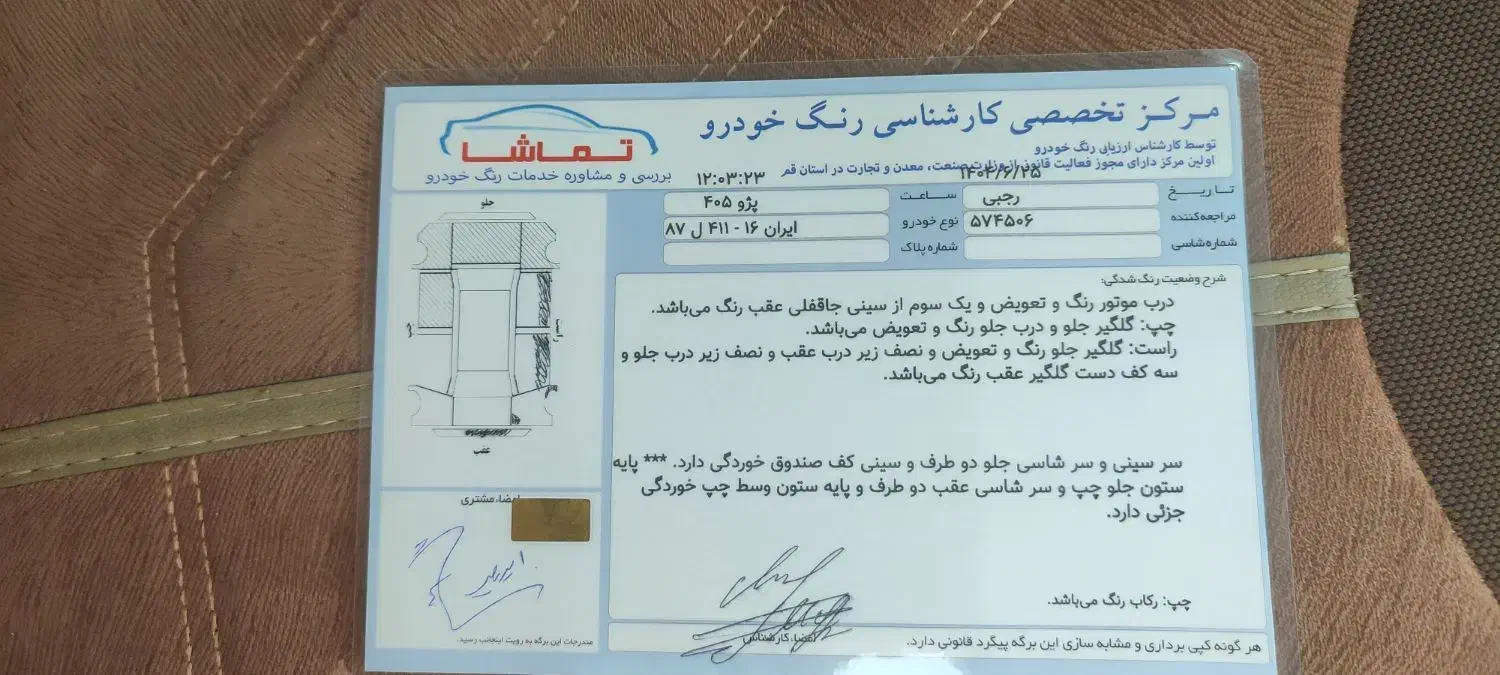 مرکز تخصصی کارشناسی رنگ خودرو
توسط کارشناس ارزیابی رنگ خودرو
اولین مرکز دارای مجوز فعالیت قانونی از وزارت صنعت، معدن و تجارت در استان قم
تماشا
بررسی و مشاوره خدمات رنگ خودرو
تاریخ ۱۴۰۴/۶/۲۵ ساعت ۱۲:۰۳:۲۳
مراجعه‌کننده رجبی نوع خودرو پژو ۴۰۵
شماره شاسی ۵۷۴۵۰۶ شماره پلاک ایران ۱۶ - ۴۱۱ ل ۸۷
جلو
چپ
راست
عقب
شرح وضعیت رنگ شدگی:
درب موتور رنگ و تعویض و یک سوم از سینی جاقفلی عقب رنگ می‌باشد.
چپ: گلگیر جلو و درب جلو رنگ و تعویض می‌باشد.
راست: گلگیر جلو رنگ و تعویض و نصف زیر درب عقب و نصف زیر درب جلو و
سه کف دست گلگیر عقب رنگ می‌باشد.
سر سینی و سر شاسی جلو دو طرف و سینی کف صندوق خوردگی دارد. *** پایه
ستون جلو چپ و سر شاسی عقب دو طرف و پایه ستون وسط چپ خوردگی
جزئی دارد.
چپ: رکاب رنگ می‌باشد.
امضاء کارشناس
هر گونه کپی برداری و مشابه سازی این برگه پیگرد قانونی دارد.
امضاء مشتری
مندرجات این برگه به رویت اینجانب رسید.